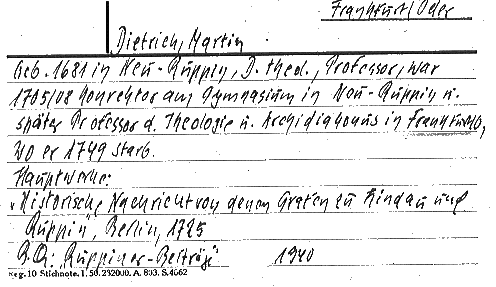 Frankfurt/Oder
Dietrich, Martin
Geb. 1681 in Neu-Ruppin, D. theol., Professor, war
1705/08 Konrektor am Gymnasium in Neu-Ruppin u.
später Professor d. Theologie u. Archidiakonus in Frankfurt/O,
wo er 1749 starb.
Hauptwerke:
„Historische Nachricht von denen Grafen zu Lindau und
Ruppin", Berlin, 1725
"Ruppiner-Beiträge" 1940
Reg. 10 Stichnote. I. 50. 232000. A. 803. S. 4662